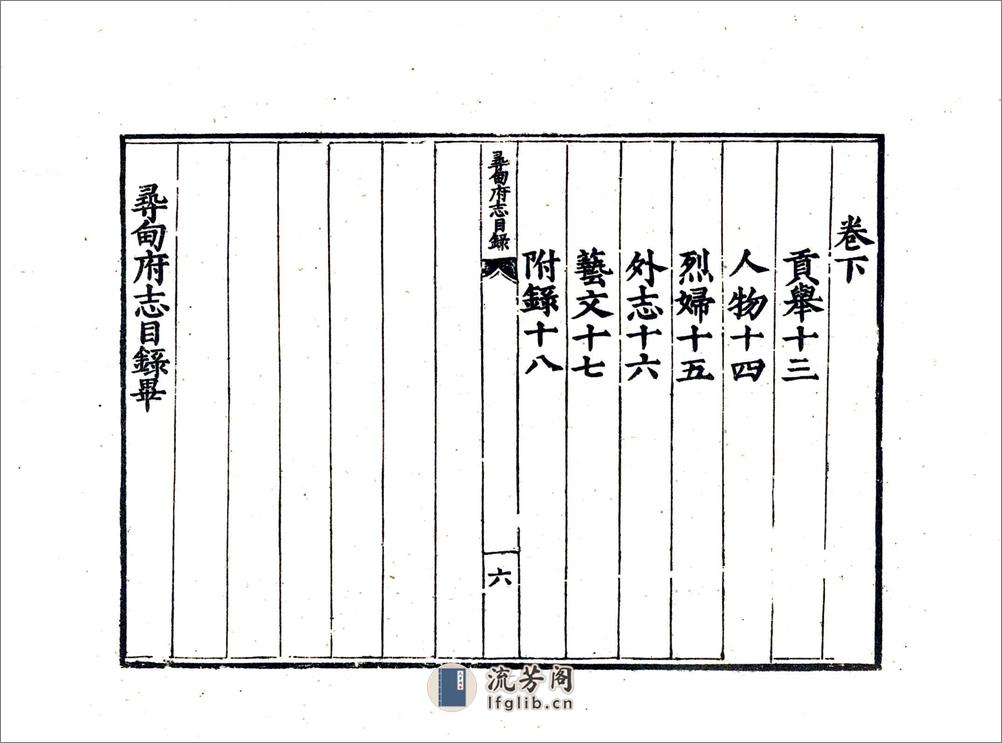 卷下
貢舉十三
人物十四
烈婦十五
外志十六
藝文十七
附錄十八
尋甸府志目錄
六
尋甸府志目錄畢
流芳阁
lfglib.cn